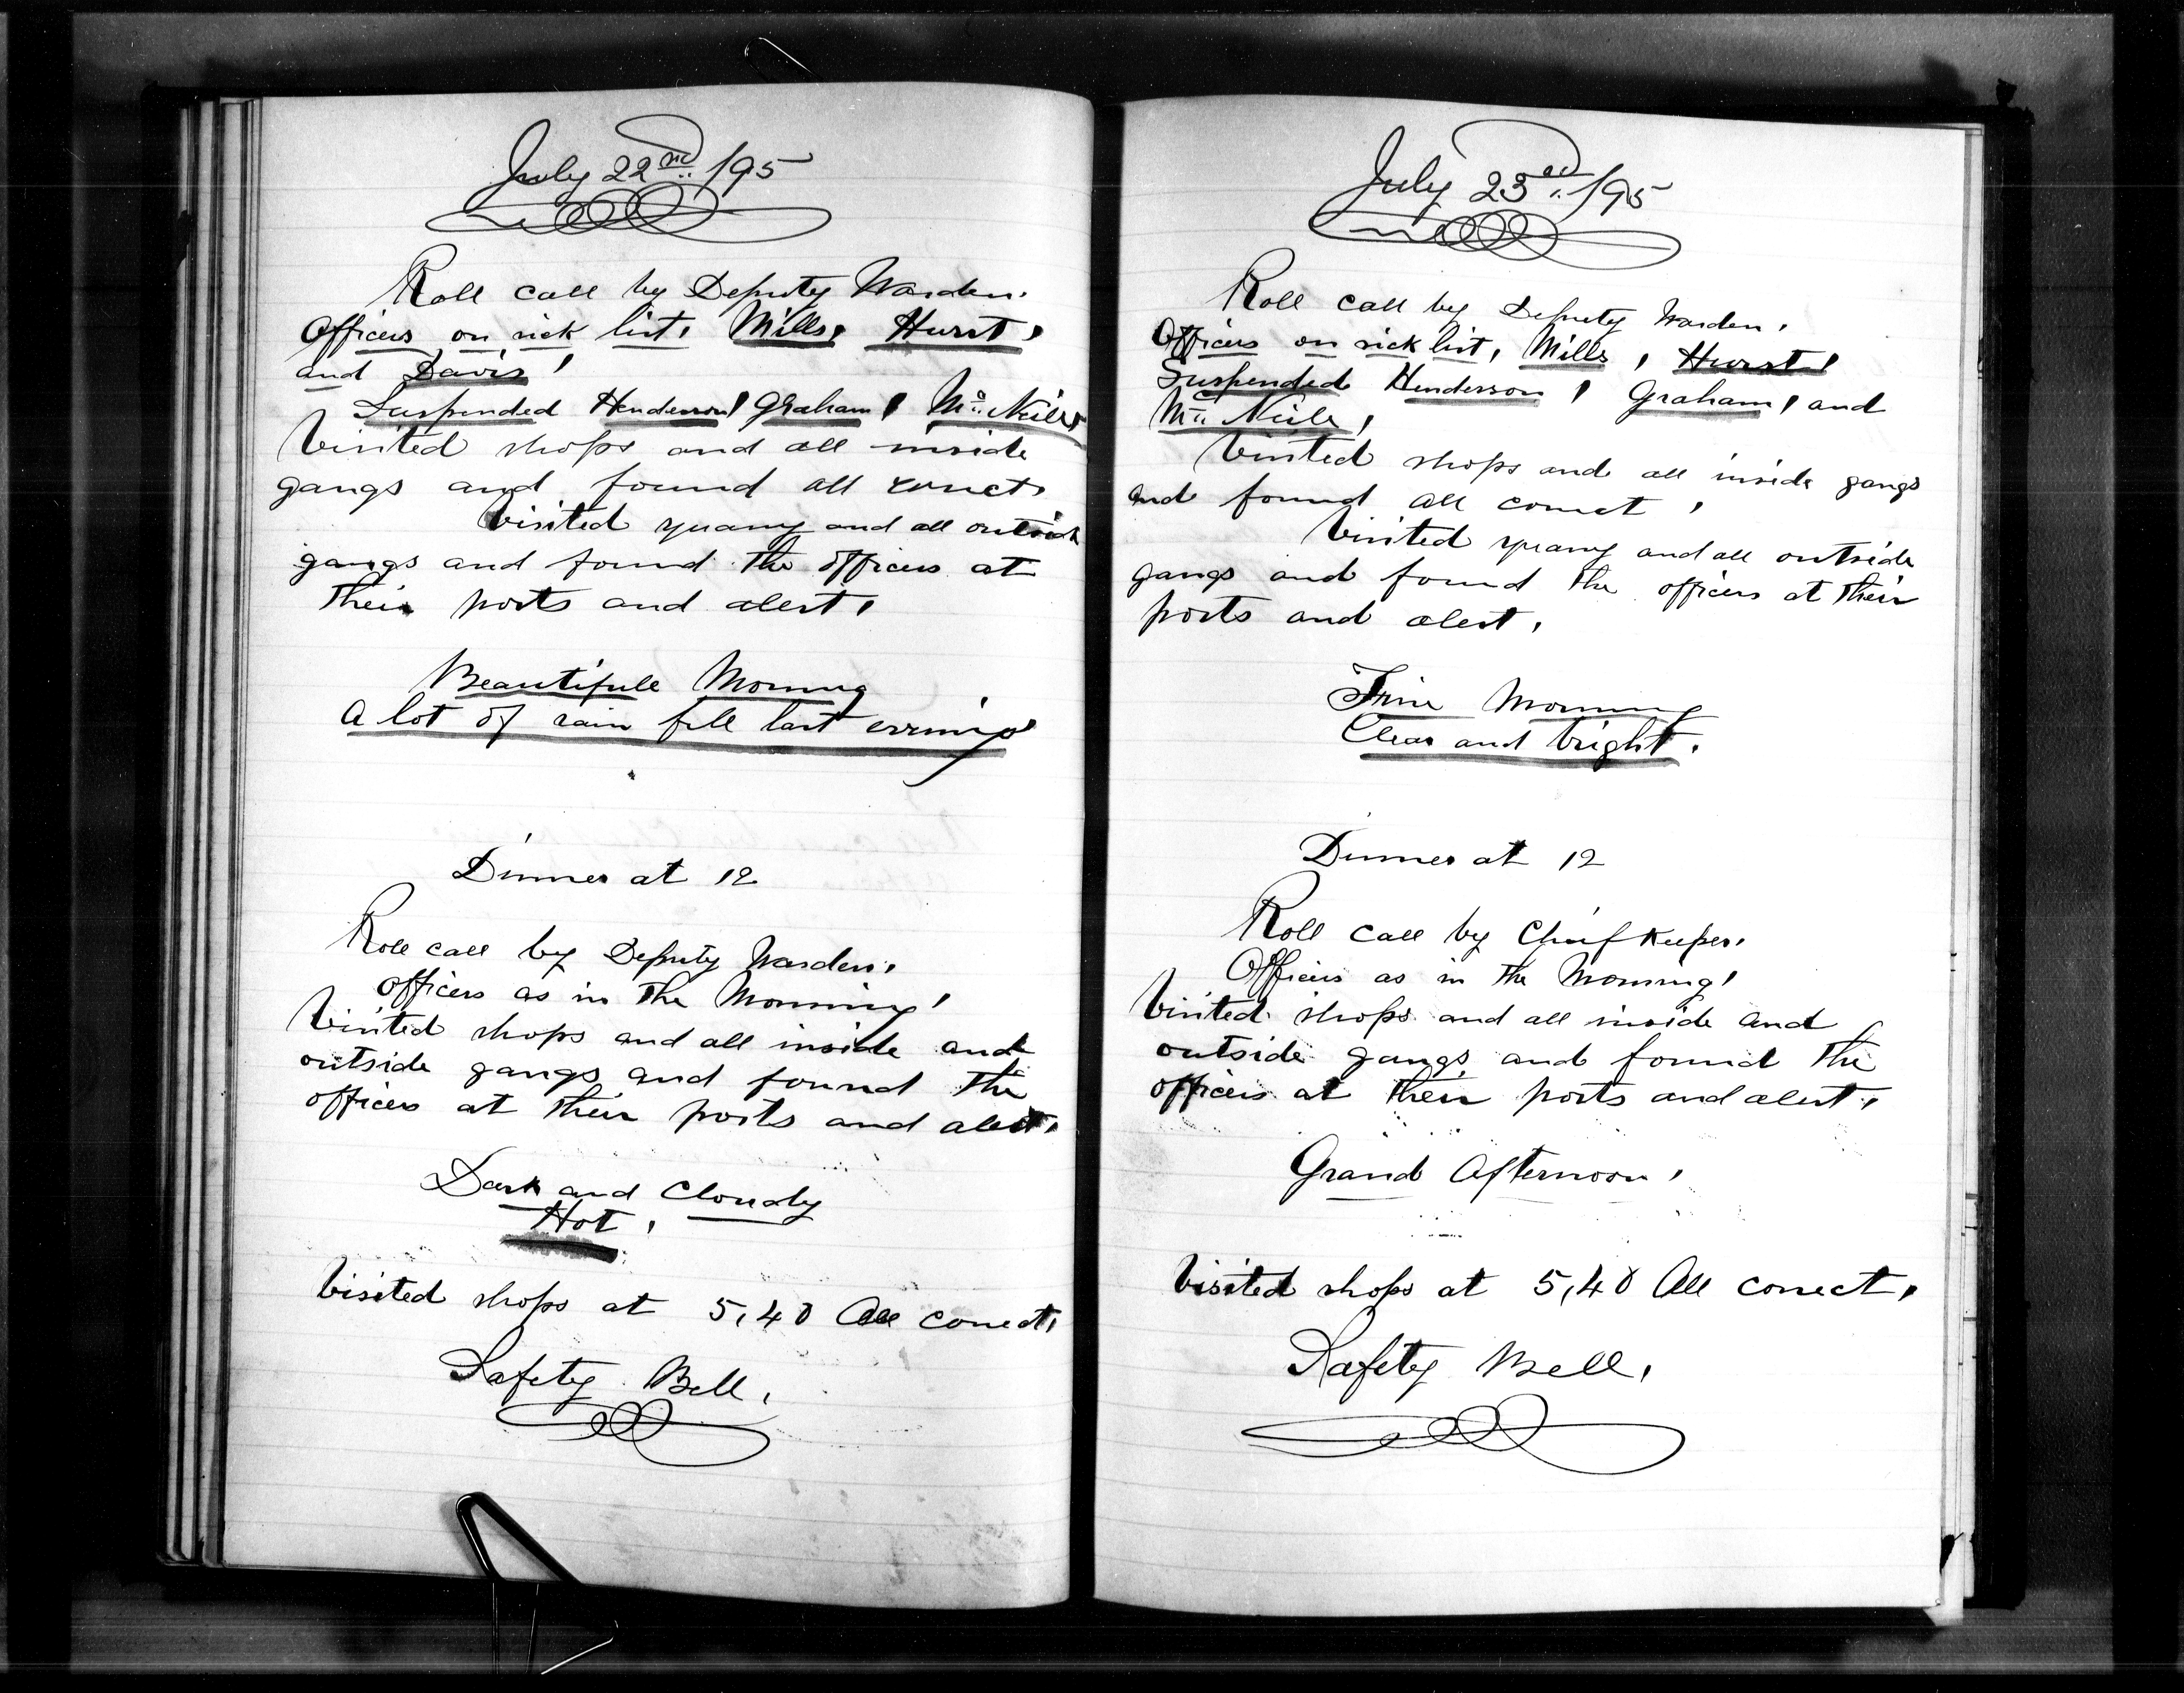 July 22nd /95
Roll call by Deputy Warden.
Officers on sick list, Mills, Hurst,
and Davis,
Suspended Henderson, Graham, Mc Neile,
Visited shops and all inside
gangs and found all correct,
Visited quarry and all outside
gangs and found the officers at
their posts and alert,
Beautifull Morning
A lot of rain fell last evening
Dinner at 12
Roll call by Deputy Warden,
officers as in the Morning,
Visited shops and all inside and
outside gangs and found the
officers at their posts and alert,
Dark and Cloudy
Hot,
Visited shops at 5,40 All correct,
Safety Bell,
July 23rd /95
Roll call by Deputy Warden,
Officers on sick list, Mills, Hurst,
Suspended Henderson, Graham, and
Mc Neile,
Visited shops and all inside gangs
and found all correct,
Visited quarry and all outside
gangs and found the officers at their
posts and alert,
Fine Morning
Clear and bright.
Dinner at 12
Roll call by Chief Keeper,
Officers as in the Morning,
Visited shops and all inside and
outside gangs and found the
officers at their posts and alert,
Grand Afternoon,
Visited shops at 5,40 All correct,
Safety Bell,